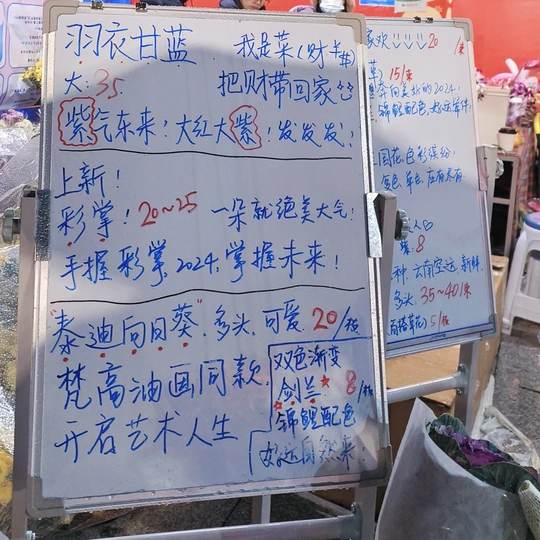 羽衣甘蓝 我是菜(财
大:35 把财带回家
紫气东来!大红大紫!发发发!
上新!
彩掌!20~25 一朵就绝美大气!
手握彩掌2024,掌握未来!
"泰迪向日葵"多头,可爱,20/枝
梵高油画同款
开启艺术人生
双色渐变
剑兰 8/枝
锦鲤配色
好运自然来!
20 /束
15/束
2024!
锦鲤配色,好运常伴
国花,色彩缤纷!
复色,单色,应有尽有
8
种,云南空运,新鲜
多头,35~40/束
5/枝